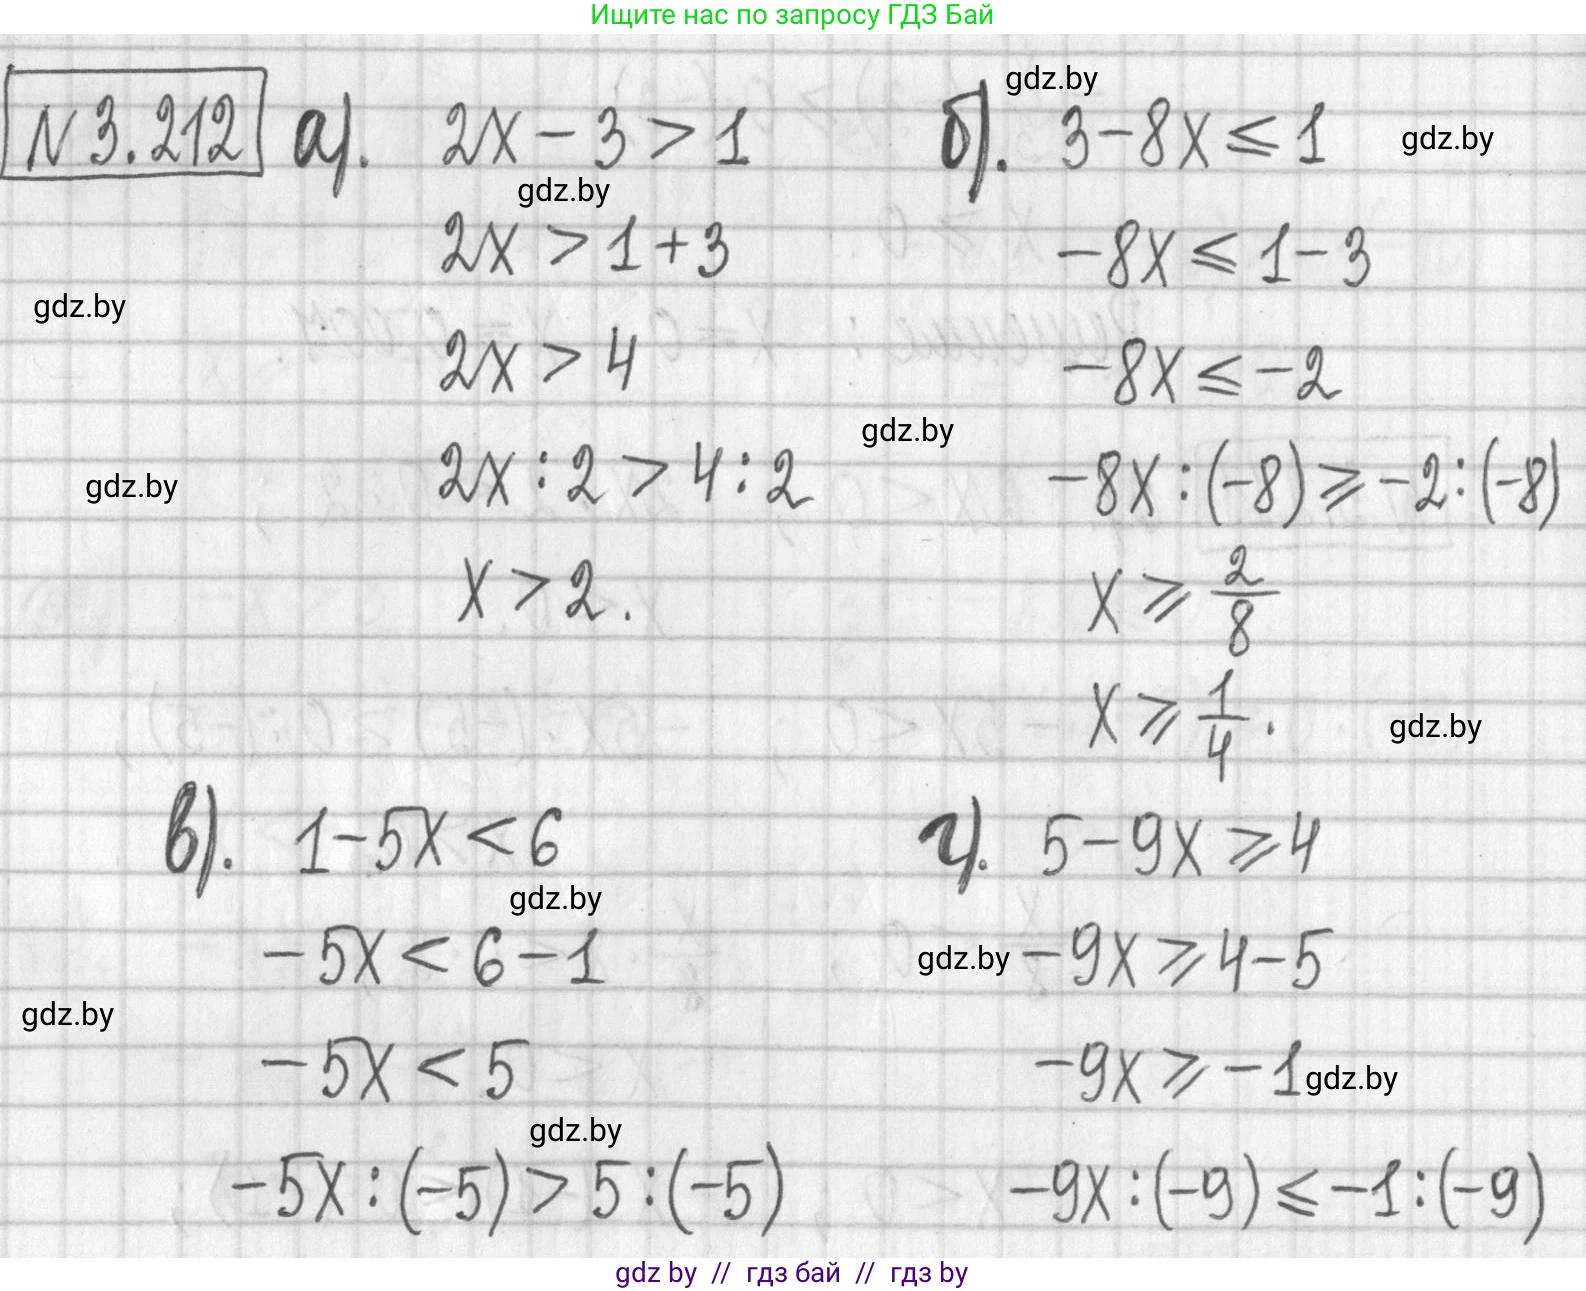 Ищите нас по запросу ГДЗ Бай
N 3.212
а). 2x - 3 > 1
gdz.by
2x > 1 + 3
gdz.by
2x > 4
gdz.by
2x : 2 > 4 : 2
gdz.by
x > 2.
gdz.by
б). 3 - 8x ⩽ 1
gdz.by
-8x ⩽ 1 - 3
-8x ⩽ -2
-8x : (-8) ⩾ -2 : (-8)
x ⩾ 2/8
x ⩾ 1/4.
gdz.by
в). 1 - 5x < 6
gdz.by
-5x < 6 - 1
gdz.by
-5x < 5
gdz.by
-5x : (-5) > 5 : (-5)
г). 5 - 9x ⩾ 4
gdz.by
-9x ⩾ 4 - 5
-9x ⩾ -1
gdz.by
-9x : (-9) ⩽ -1 : (-9)
gdz by // гдз бай // гдз by